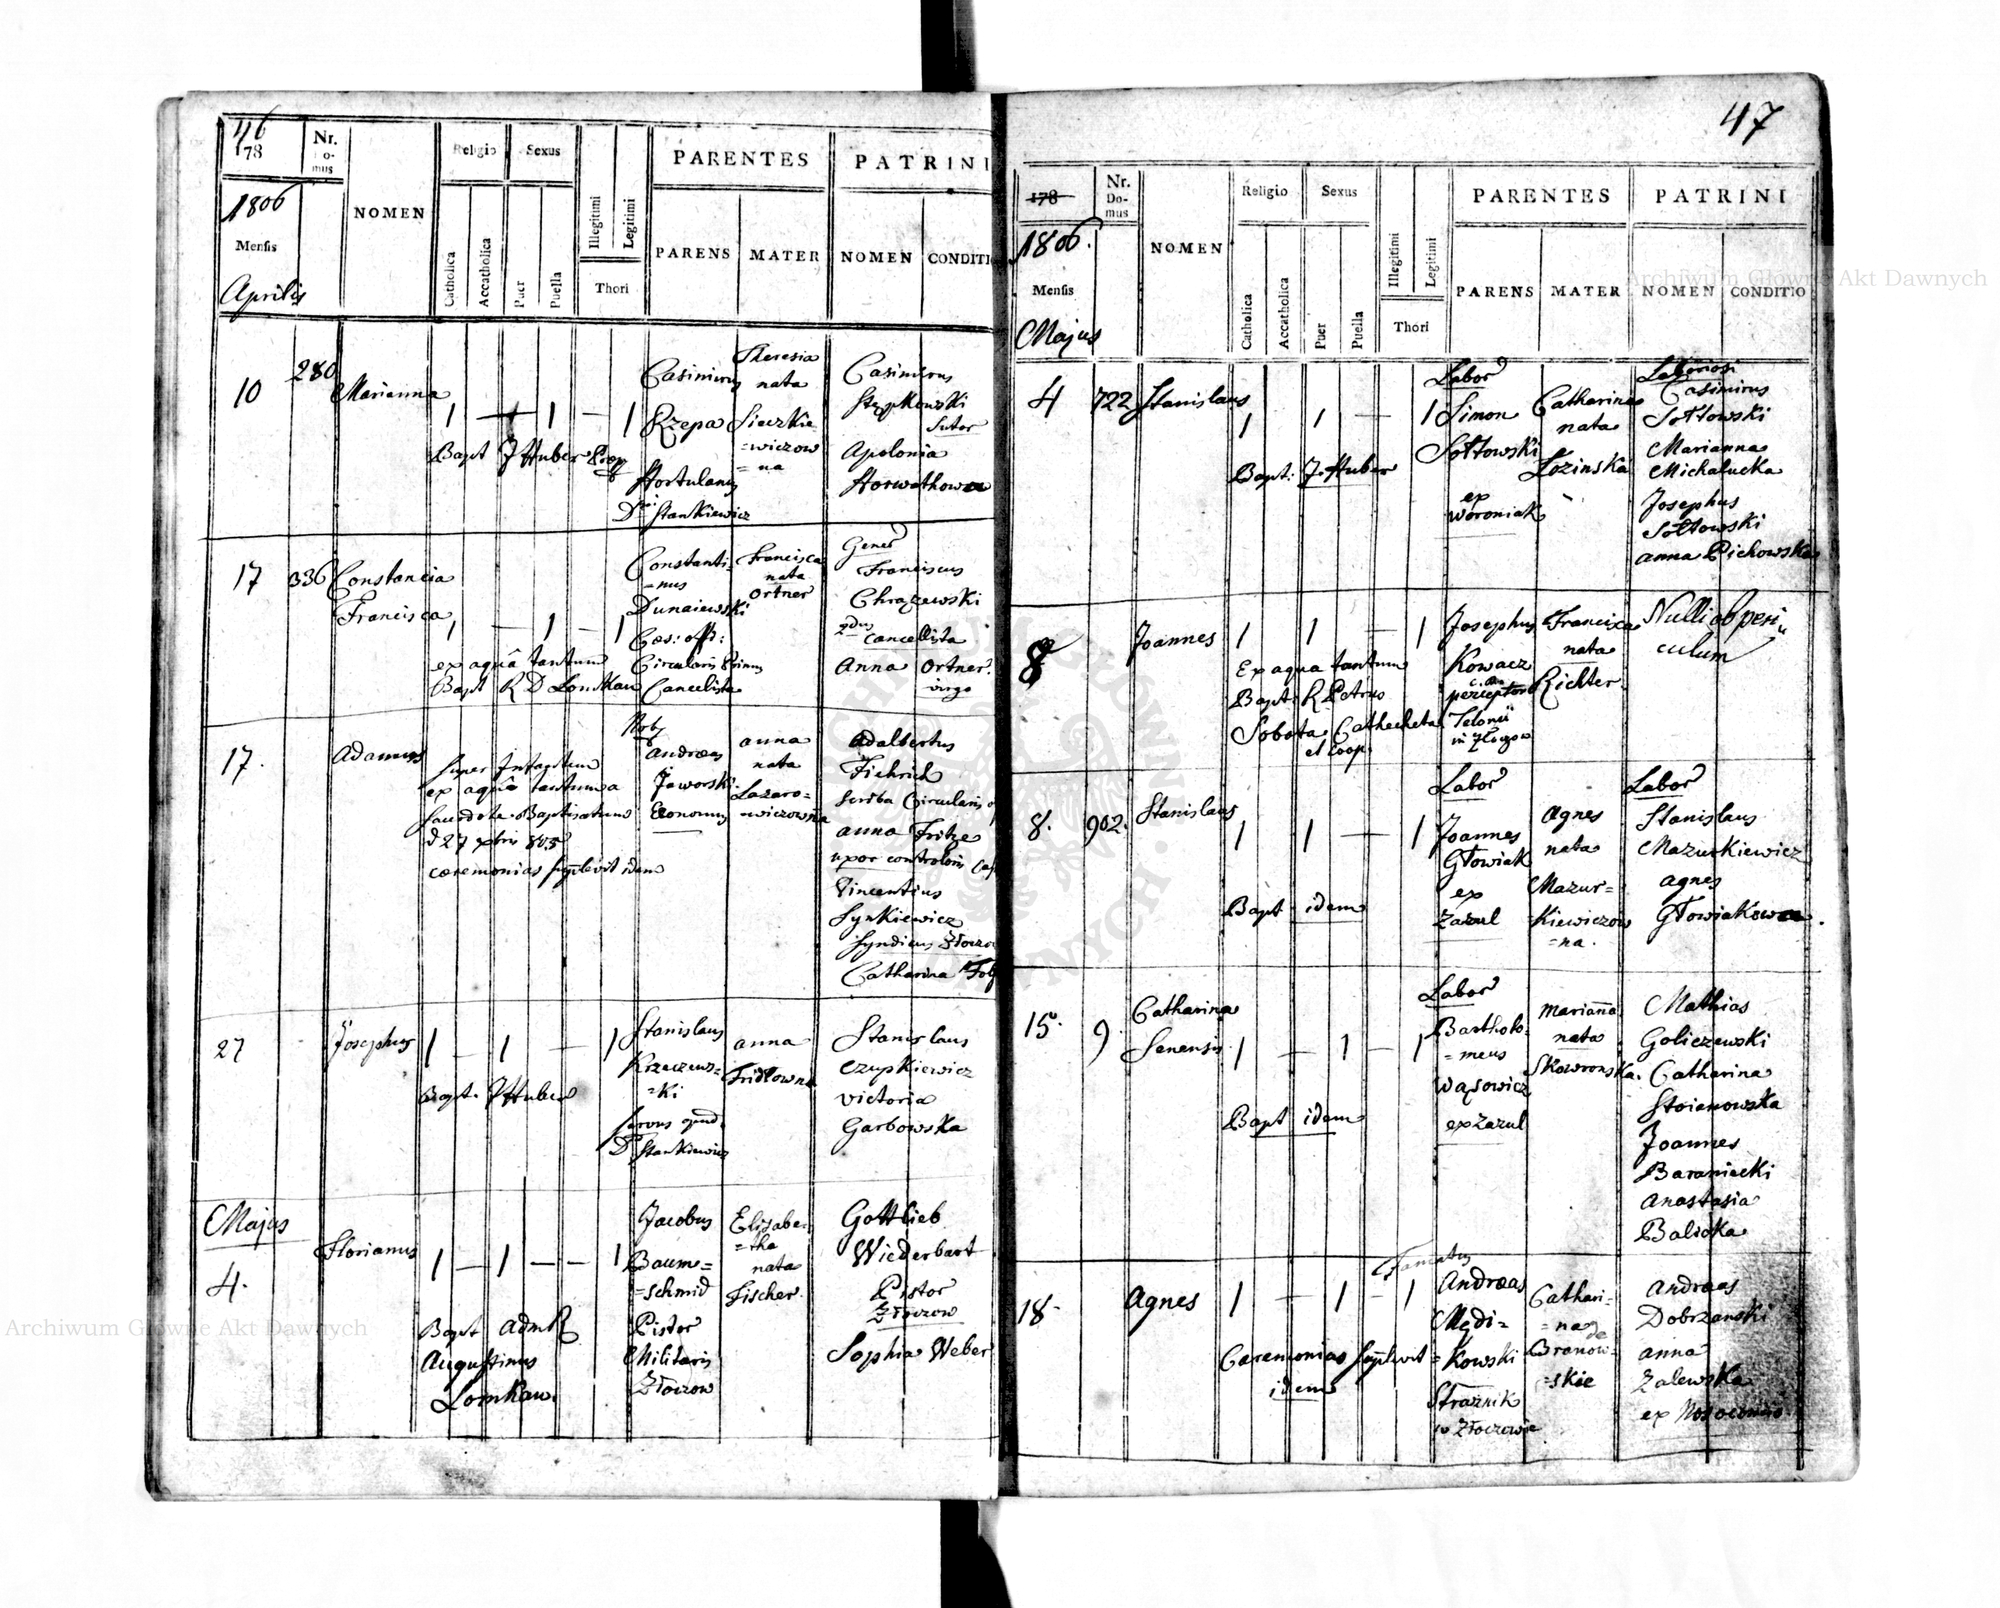 46
178
Nr.
Do-
mus
NOMEN
Religio
Sexus
PARENTES
PATRINI
1806
Mensis
Aprilis
Catholica
Accatholica
Puer
Puella
Illegitimi
Legitimi
Thori
PARENS
MATER
NOMEN
CONDITIO
10
280
Marianna
1 — + 1 — 1
Bapt J Huber
Casimirus
Rzepa
Hortulanus
Di Stankiewicz
Theresia
nata
Sieczkie
=wiczow
=na
Casimirus
Stypkowski
Sutor
Apolonia
Horwathowa
17
336
Constancia
Francisca
1 — 1 — 1
ex aquâ tantum
Bapt R D Lomkau
Constanti=
=nus
Dunaiewski
Caes: off:
Circularis Primus
Cancelista
Francisca
nata
Ortner
Gener
Franciscus
Chrazewski
2dus
cancellista
Anna Ortner
virgo
17.
Adamus
super Infantem
ex aquâ tantum a
sacerdote Baptisatum
d 27 xbris 805
caeremonias supplevit idem
Nob
Andreas
Jaworski
Economus
Anna
nata
Lazaro=
=wiczowna
Adalbertus
Fichrich
scriba Circularis
Anna Fritze
uxor controloris
Vincentius
Synkiewicz
Syndicus Złoczov
Catharina
27
Josephus
1 — 1 — 1
Bapt. J Huber
Stanislaus
Krzeczews=
=ki
servus apud
D Stankiewicz
Anna
Fridlowna
Stanislaus
Czupkiewicz
Victoria
Garbowska
Majus
4.
Florianus
1 — 1 — — 1
Bapt AdmR
Augustinus
Lomkau.
Jacobus
Baum=
=schmid
Pistor
Militaris
Złoczow
Elizabe=
=tha
nata
Fischer.
Gottlieb
Wiederbart
Pistor
Złoczow
Sophia Weber
47
178
Nr.
Do-
mus
NOMEN
Religio
Sexus
PARENTES
PATRINI
1806.
Mensis
Majus
Catholica
Accatholica
Puer
Puella
Illegitimi
Legitimi
Thori
PARENS
MATER
NOMEN
CONDITIO
4
722
Stanislaus
1 1 — 1
Bapt: J. Huber
Labor
Simon
Sołtowski
ex
Woroniak
Catharina
nata
Lozinska
Laboriosi
Casimirus
Sołtowski
Marianna
Michalucka
Josephus
Sołtowski
Anna Pichowska
8
Joannes
1 1 — 1
Ex aqua tantum
Bapt: R Petrus
Sobota Cathecheta
et Coop.
Josephus
Kowacz
perceptor
Telonii
in
Francisca
nata
Richter.
Nulli ob peri
culum
8.
902.
Stanislaus
1 1 — 1
Bapt idem
Labor
Joannes
Głowiak
ex
Zazul
Agnes
nata
Mazur=
Kiewiczow
=na.
Labor
Stanislaus
Mazurkiewicz
Agnes
Głowiakowa.
15.
9.
Catharina
Senensis
1 — 1 — 1
Bapt idem
Labor
Bartholo=
=meus
Wąsowicz
ex Zazul
Marianna
nata
Skowronska.
Mathias
Goliczewski
Catharina
Stoianowska
Joannes
Baraniecki
Anastasia
Balicka
18.
Agnes
1 — 1 — 1
Caeremonias supplevit
idem
Famatus
Andreas
Mędi=
=Kowski
Strażnik
w Złoczowie
Cathari=
=na de
Branow=
=skie
Andreas
Dobrzanski
Anna
Zalewska
Archiwum Główne Akt Dawnych
Archiwum Główne Akt Dawnych